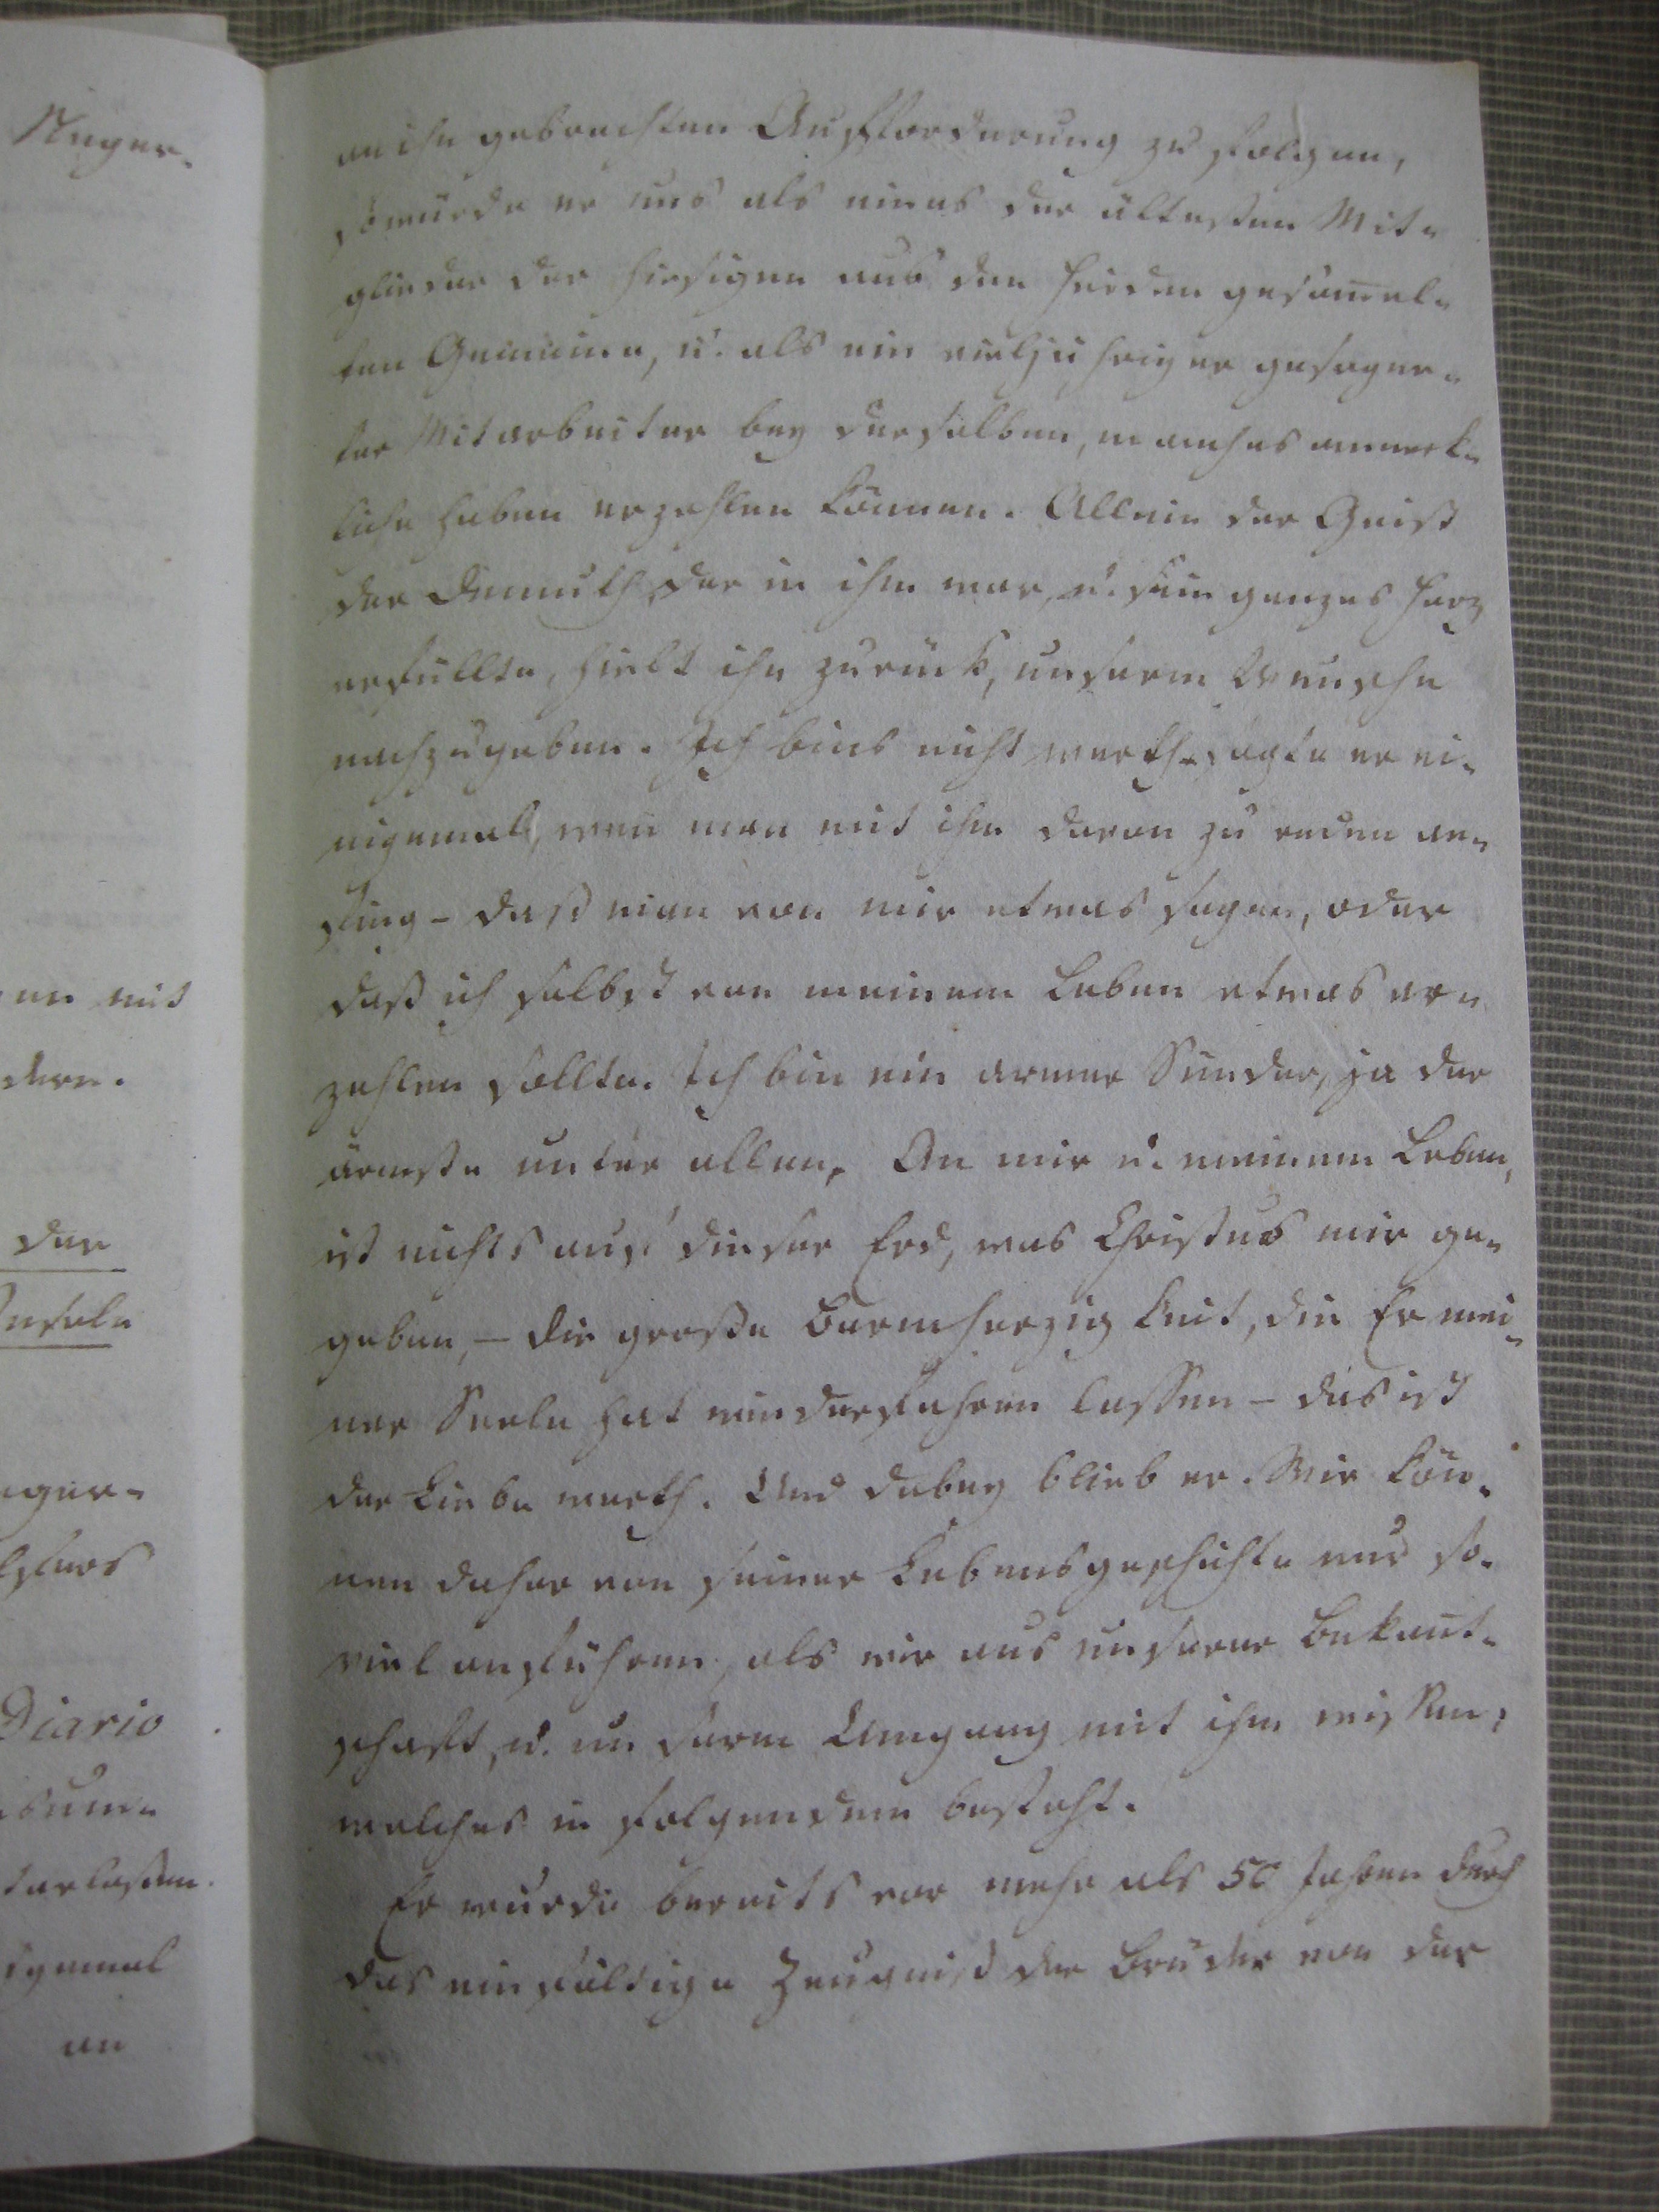 Neger-
en mit
dern.
der
Inseln
eger-
Diario
terlaßen.
igemal
an
an ihn gebrachten Aufforderung zu folgen,
so würde er uns als eines der ältesten Mit-
glieder der hiesigen aus den Heiden gesam̅el-
ten Gemeine, u. als ein vieljähriger gesegne-
ter Mitarbeiter bey derselben, manches merk-
liche haben erzehlen können. Allein der Geist
der Demuth, der in ihm war, u. sein ganzes Herz
erfüllte, hielt ihn zurück, unserm Wunsche
nachzugeben. Ich bins nicht werth, sagte er ei-
nigemal, wen̅ man mit ihm davon zu reden an-
fing - daß man von mir etwas sagen, oder
daß ich selbst von meinem Leben etwas er-
zehlen sollte. Ich bin ein armer Sünder, ja der
ärmste unter allen. An mir u. meinem Leben,
ist nichts auf dieser Erd, was Christus mir ge-
geben, - die große Barmherzigkeit, die Er mei-
ner Seele hat wiederfahren lassen - das ist
der Liebe werth. Und dabey blieb er. Wir kön-
nen daher von seiner Lebensgeschichte nur so-
viel anführen, als wir aus unserer Bekan̅t-
schaft, u. unserm Umgang mit ihm wissen,
welches in folgendem besteht.
Er wurde bereits vor mehr als 50 Jahren durch
das einfältige Zeugniß der Brüder von der